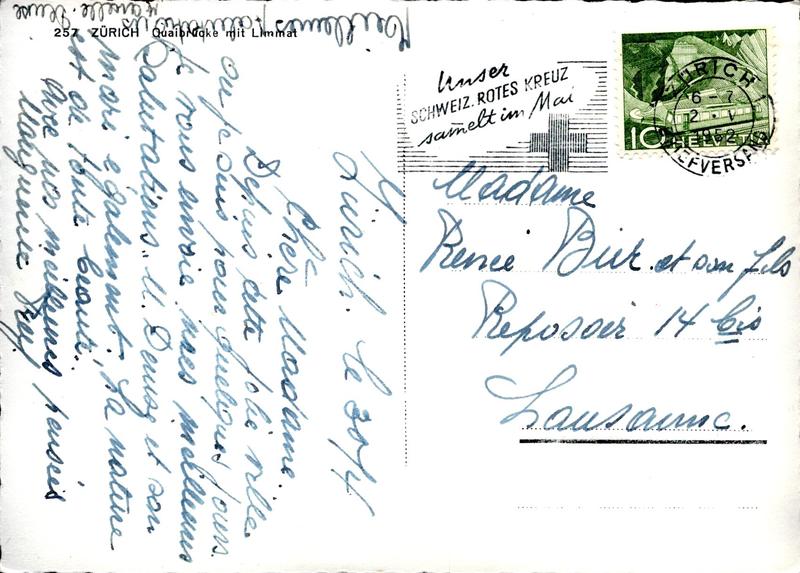 257 ZÜRICH Quaibrücke mit Limmat
Unser
SCHWEIZ. ROTES KREUZ
sammelt im Mai
ZÜRICH
6-7
2. V
1952
BRIEFVERSAND
10 HELVETIA
Madame
Renée Bier et son fils
Reposoir 14 bis
Lausanne.
Zürich. le 30/4
Chère Madame
Depuis cette jolie ville
où je suis pour quelques jours.
je vous envoie mes meilleures
Salutations. M. Denise et son
mari également. La nature
est de toute beauté.
Avec nos meilleures pensées
Marguerite
Meilleures